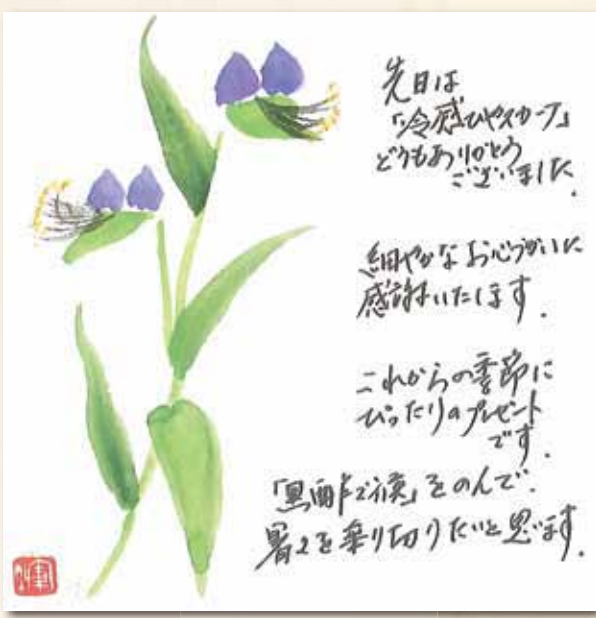 先日は
「冷感ひやスカーフ」
どうもありがとう
ございました.
細やかなお心づかいに
感謝いたします.
これからの季節に
ぴったりのプレゼント
です.
「黒酢で爽」をのんで.
暑さを乗り切りたいと思います.